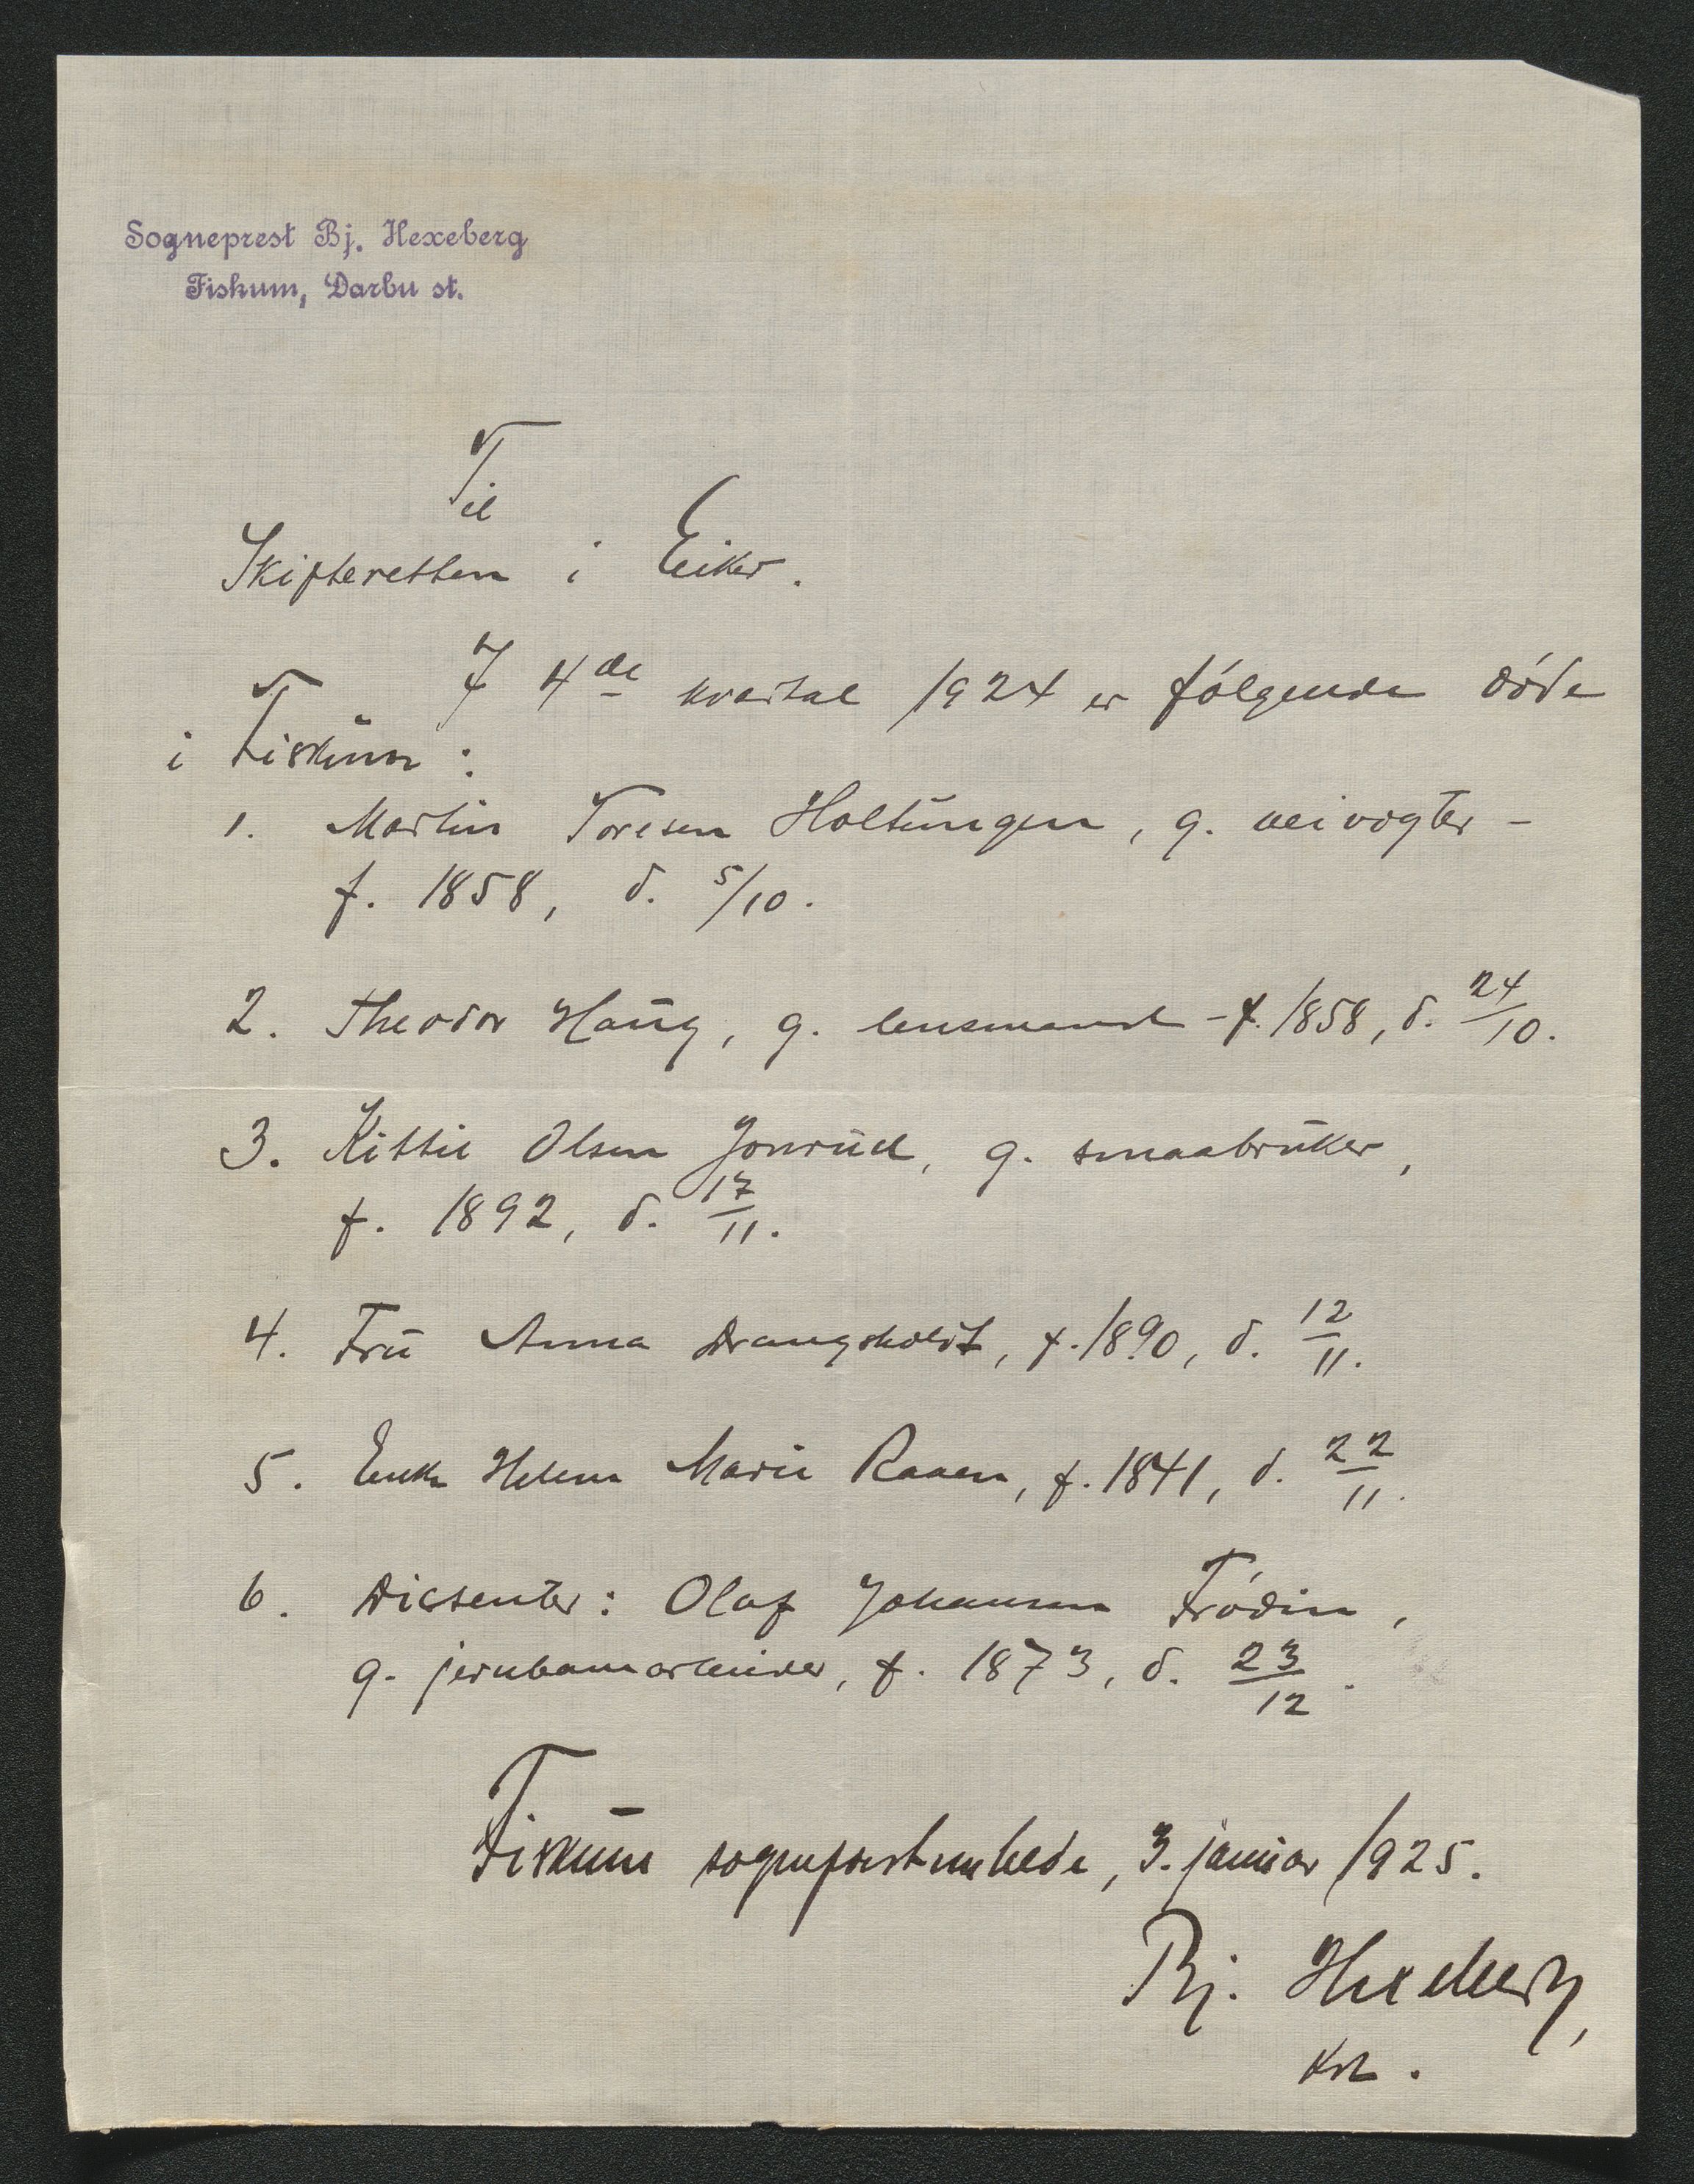 Sogneprest Bj. Hexeberg
Fiskum, Darbu st.
Til
Skifteretten i Eiker.
I 4de kvartal 1924 er følgende døde
i Fiskum:
1. Martin Toresen Holtungen, g. veivogter -
f. 1858, d. 5/10.
2. Theodor Haug, g. lensmand - f. 1858, d. 24/10.
3. Kittil Olsen Jonrud, g. smaabruker,
f. 1892, d. 17/11.
4. Fru Anna Drangsholdt, f. 1890, d. 12/11.
5. Enke Helene Marie Raaen, f. 1841, d. 22/11.
6. Dissenter: Olaf Johansen Frødin,
g. jernbanearbeider, f. 1873, d. 23/12.
Fiskum sogneprestembede, 3. januar 1925.
Bj. Hexeberg,